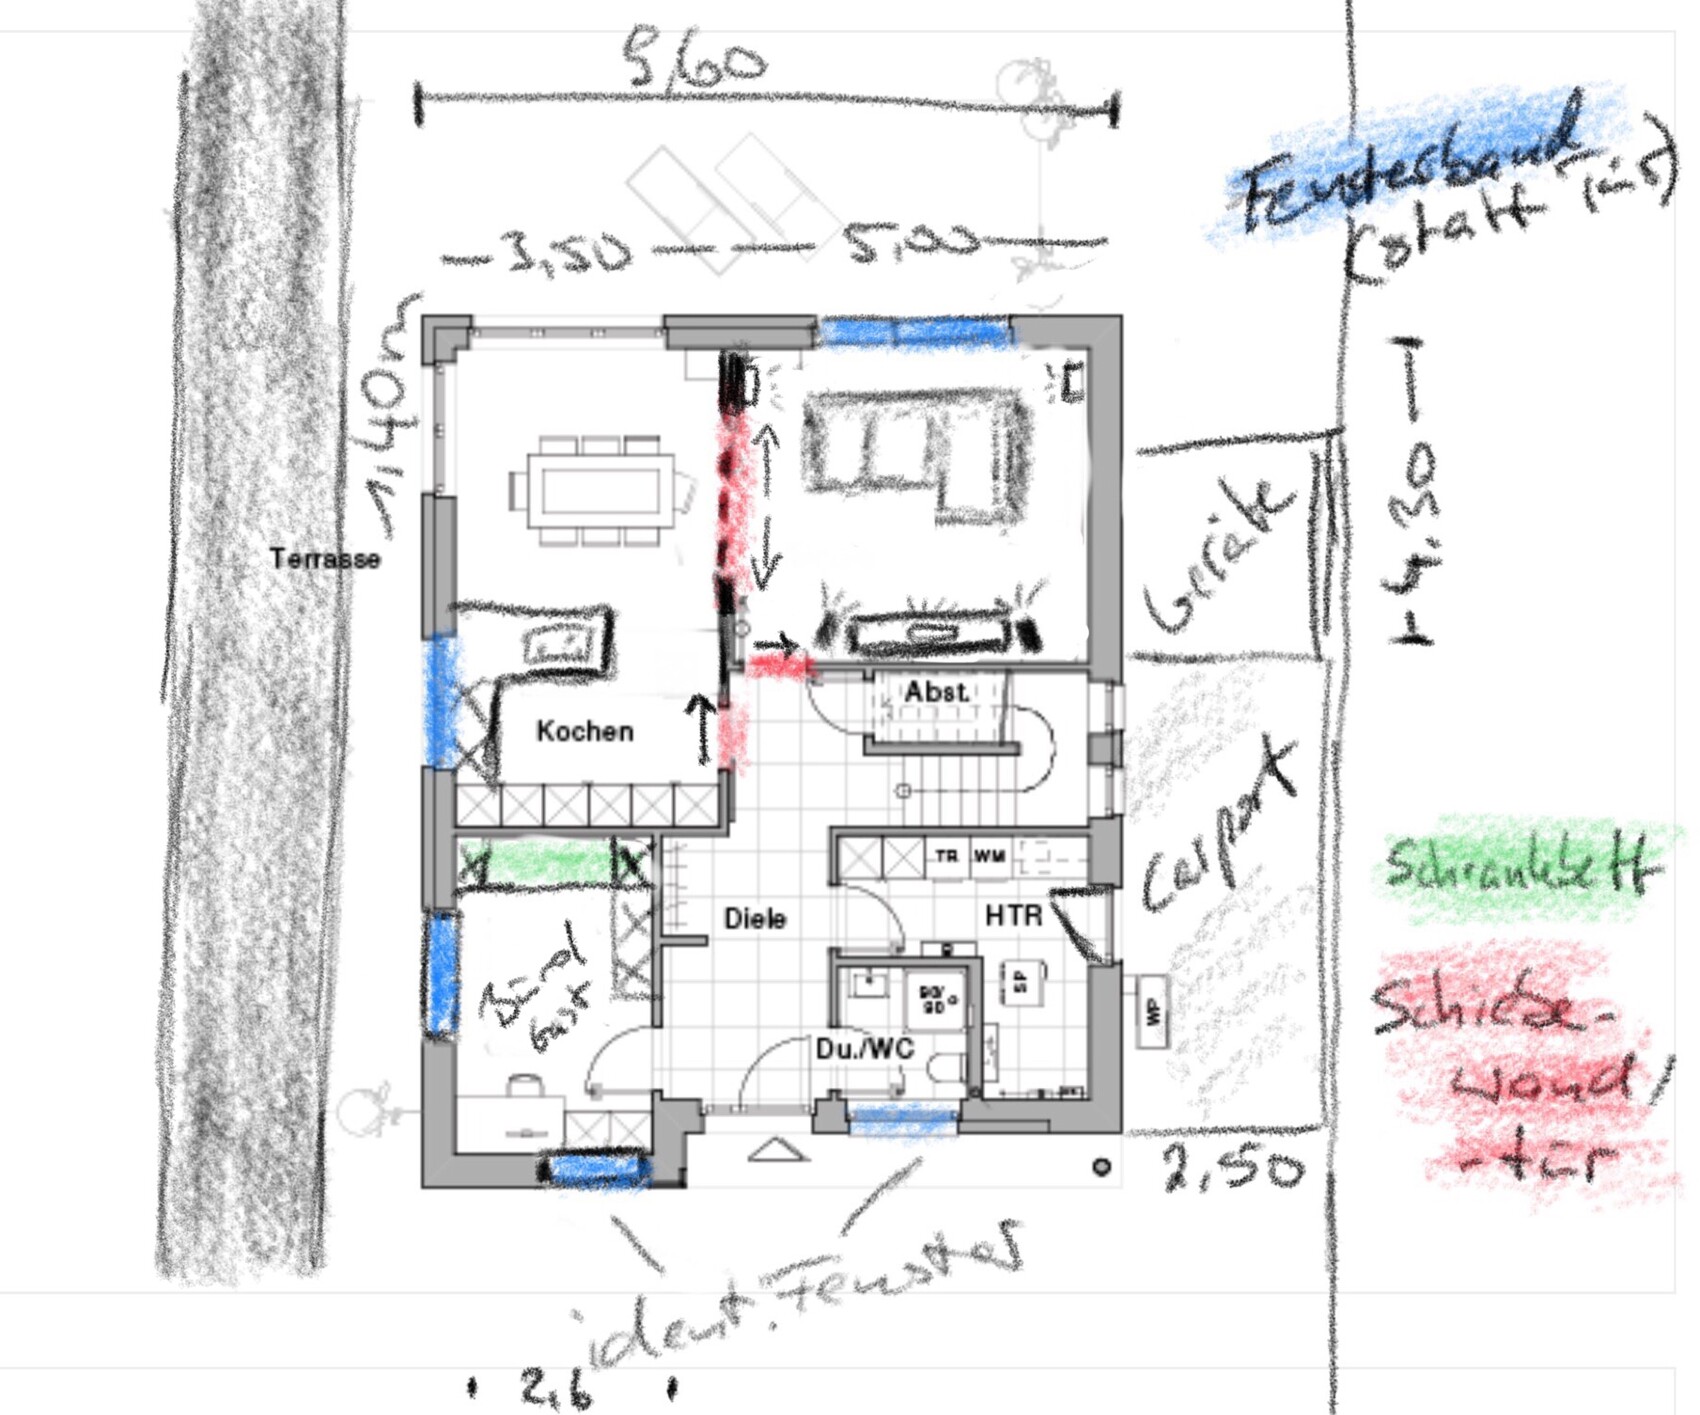 9,60
Fensterband
(statt Tür)
3,50
5,00
1,40m
4,30
Terrasse
Geräte
Abst.
Kochen
Carport
Schrankbett
TR
WM
Diele
HTR
Büro/
Gast
SP
90/
90
WP
Du./WC
Schiebe-
wand/
-tür
2,50
ident. Fenster
2,6